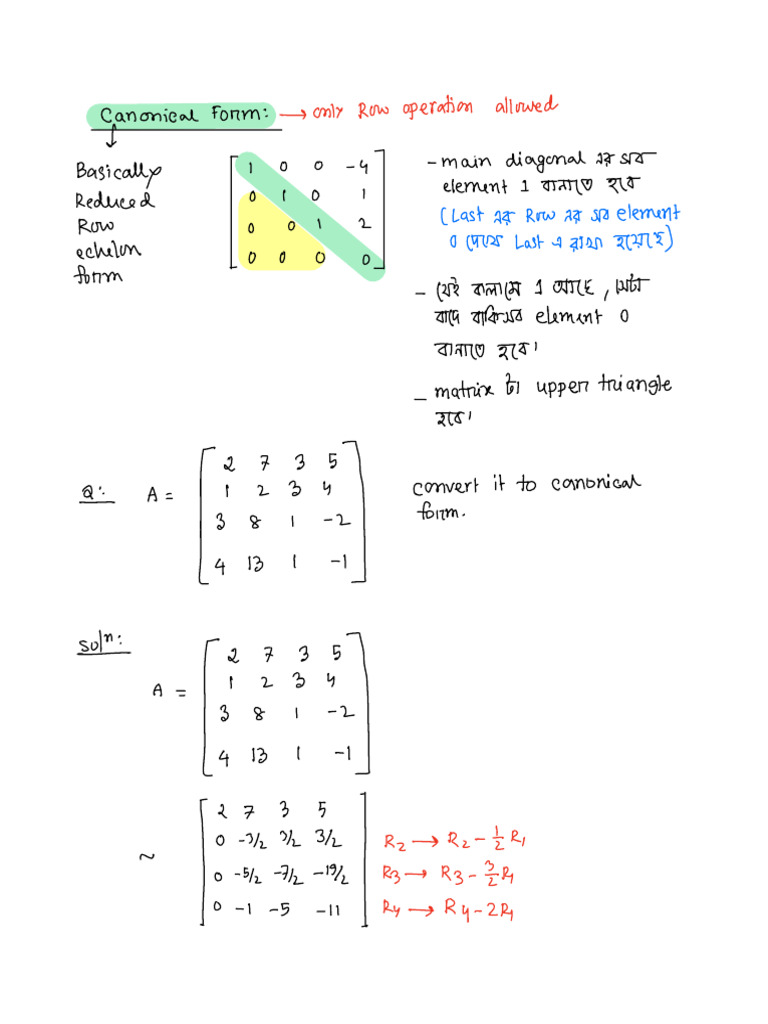 Canonical Form: → only Row operation allowed
Basically
Reduced
Row
echelon
form
1 0 0 -4
0 1 0 1
0 0 1 2
0 0 0 0
- main diagonal এর সব
element 1 বানাতে হবে
(Last এর Row এর সব element
0 দেখে Last এ রাখা হয়েছে)
- যেই কলামে 1 আছে, সেটা
বাদে বাকিসব element 0
বানাতে হবে।
- matrix টা upper triangle
হবে।
Q: A =
2 7 3 5
1 2 3 4
3 8 1 -2
4 13 1 -1
convert it to canonical
form.
Solⁿ:
A =
2 7 3 5
1 2 3 4
3 8 1 -2
4 13 1 -1
~
2 7 3 5
0 -3/2 3/2 3/2 R2 → R2 - 1/2 R1
0 -5/2 -7/2 -19/2 R3 → R3 - 3/2 R1
0 -1 -5 -11 R4 → R4 - 2R1